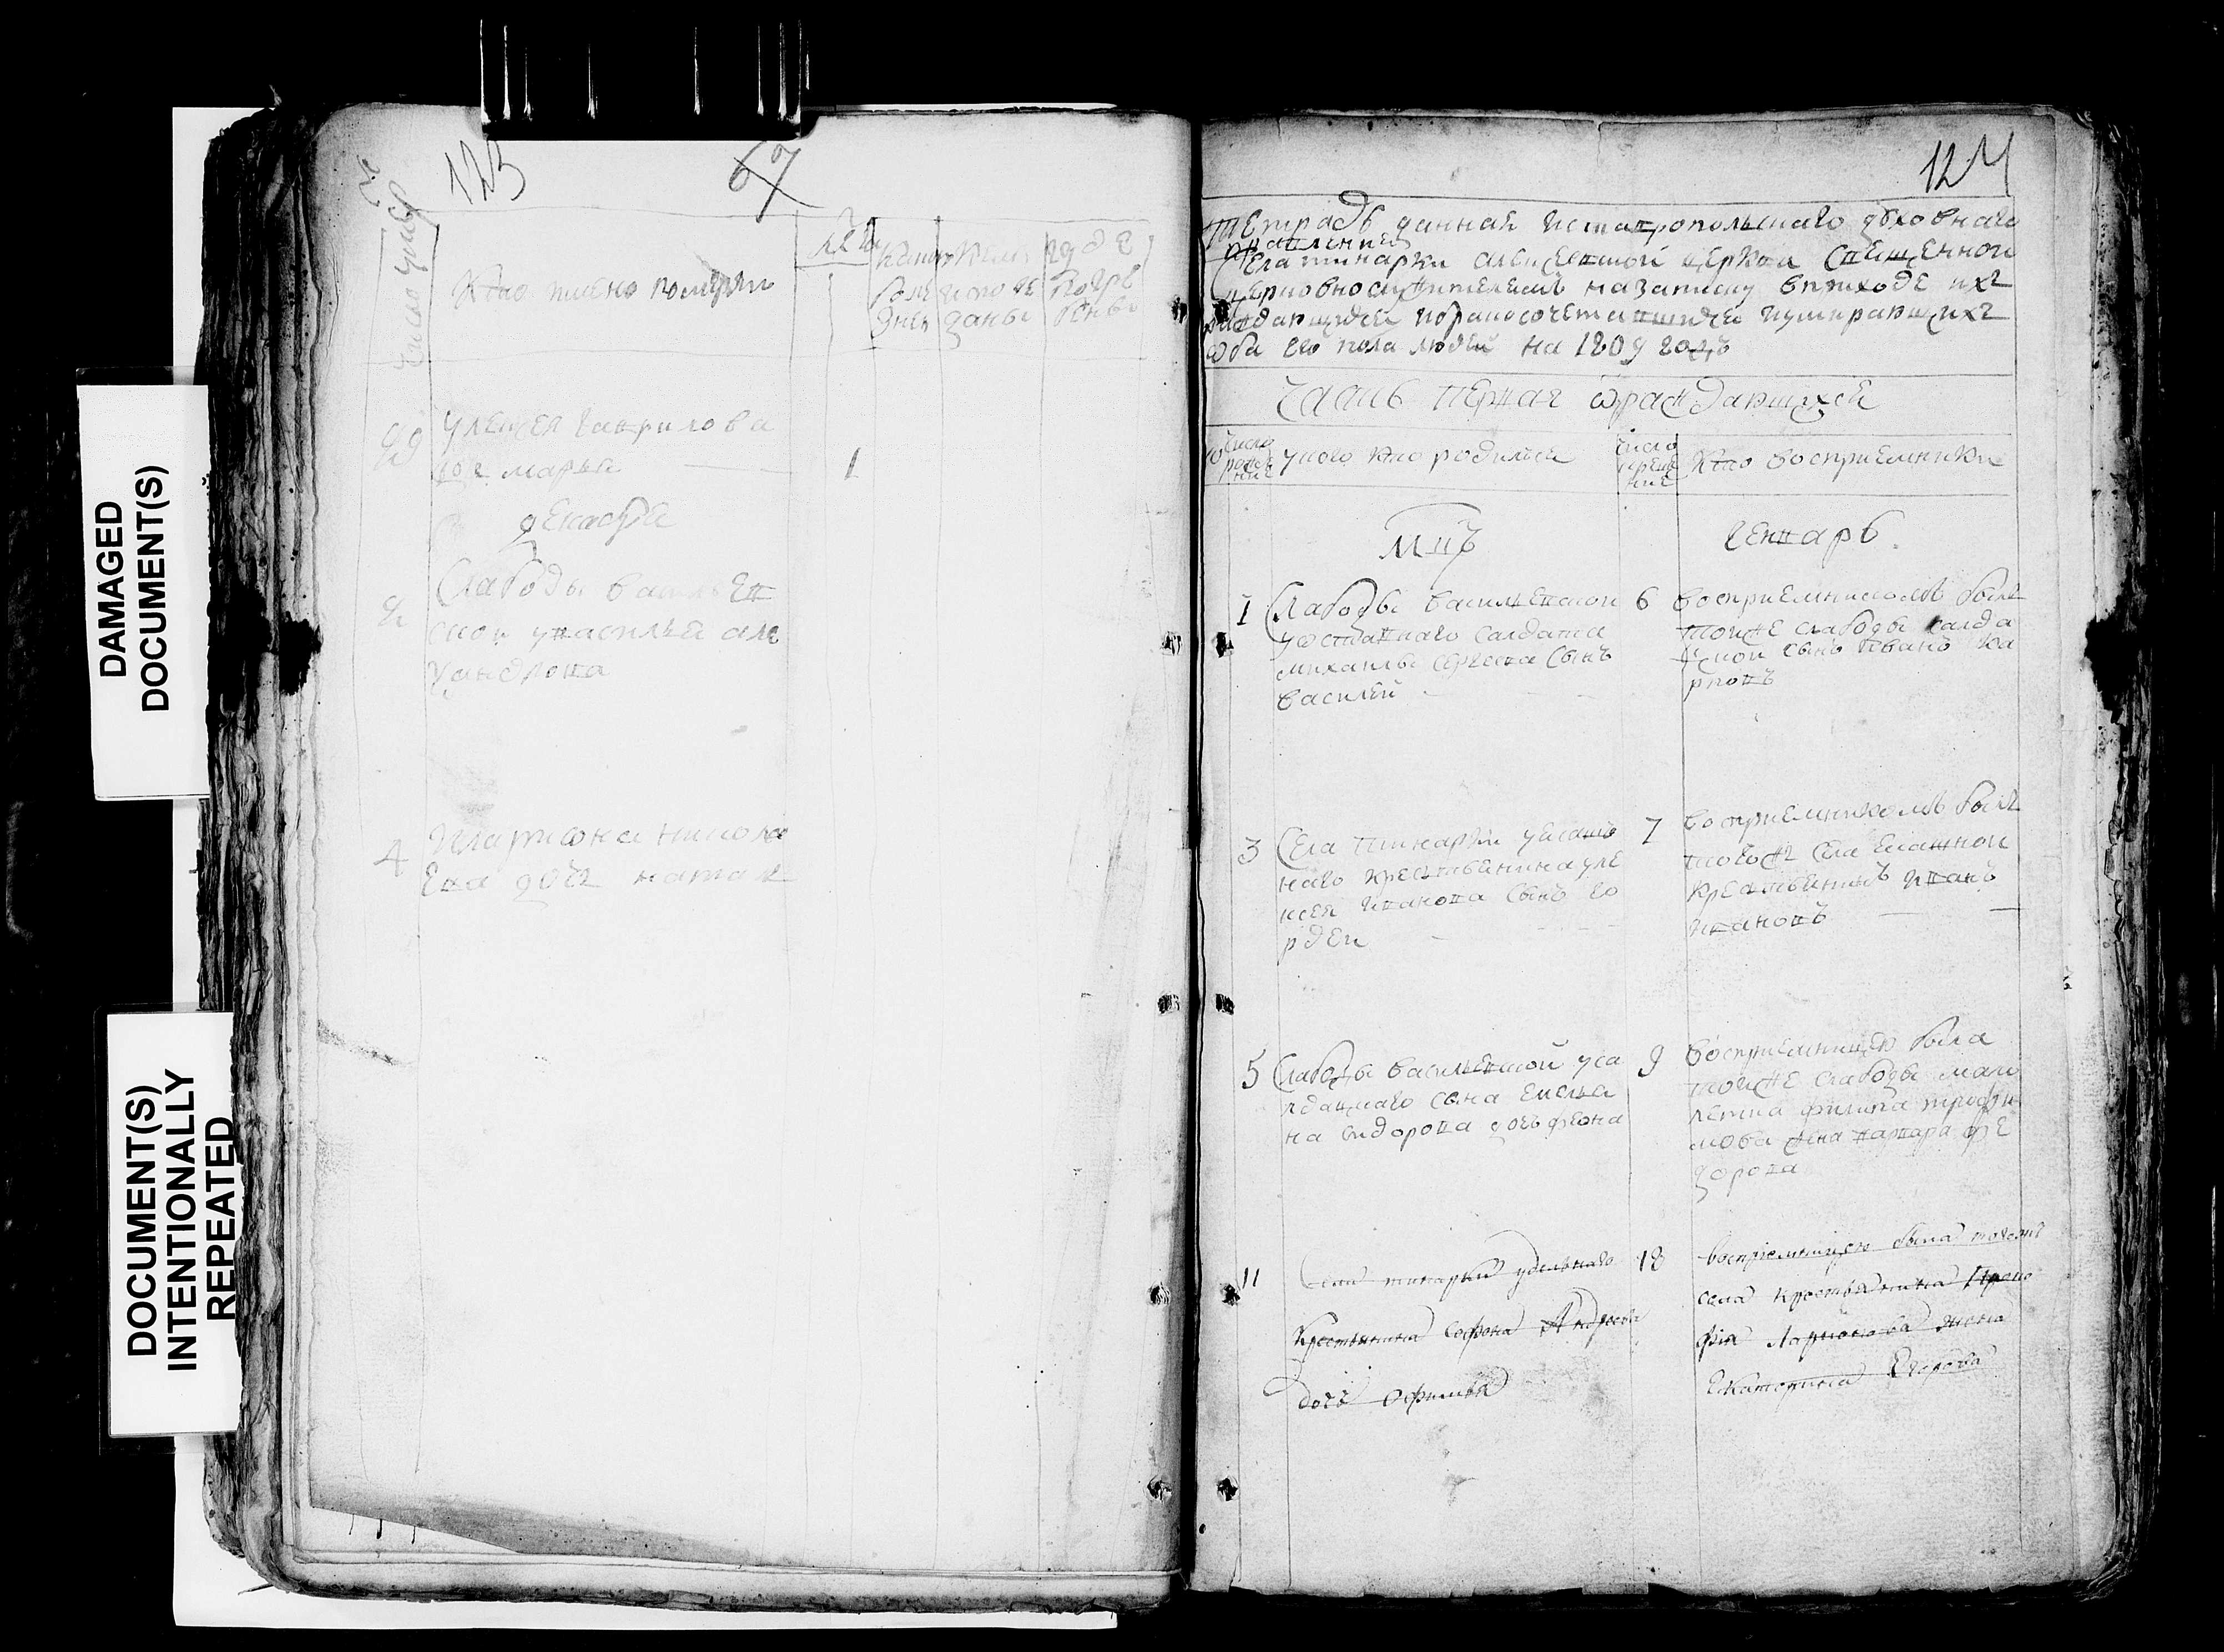 DAMAGED
DOCUMENT(S)
DOCUMENT(S)
INTENTIONALLY
REPEATED
123
67
число умер
Кто имено померли
где
погрѣ
бены
уелисея гаврилова
дочь марья
1
декабря
2
Слабоды василев
ской увасилья але
ѯандрова
4
илариона никола
ева дочь натал
124
Тетрадь данная иставропольскаго духовнаго
правления
Села пинарки алеѯеевской церкви священно
церковнослужителемъ назаписку вприходе ихъ
раждающихся ибракосочетавшихся иумирающихъ
обоего пола людей на 1809 годъ
Часть первая ѿраждающихся
число
рожде
ние
укого кто родился
число
креще
ние
Кто восприемники
Мцъ
генварь
1
Слабоды василевской
уотставнаго салдата
михаилы сергеева сынъ
василей
6
восприемникомъ былъ
тойже слабоды салда
цкой сынъ иванъ ка
рповъ
3
Села пинарки уясаш
наго крестьянина але
ѯея иванова сынъ го
рдей
7
восприемникомъ былъ
тогожъ села ясашной
крестьянинъ иванъ
ивановъ
5
Слабоды василевской уса
лдацкаго сына емелья
на сидорова дочь феона
9
восприемницею была
тойже слабоды мало
летка филипа трофи
мова жена варвара фе
дорова
11
Села пинарки удѣльнаго
Крестьянина Софона Андреева
дочь Офимья
18
восприемницею была тогожъ
села крестьянина Проко
фія Ларионова жена
Екатерина Егорова